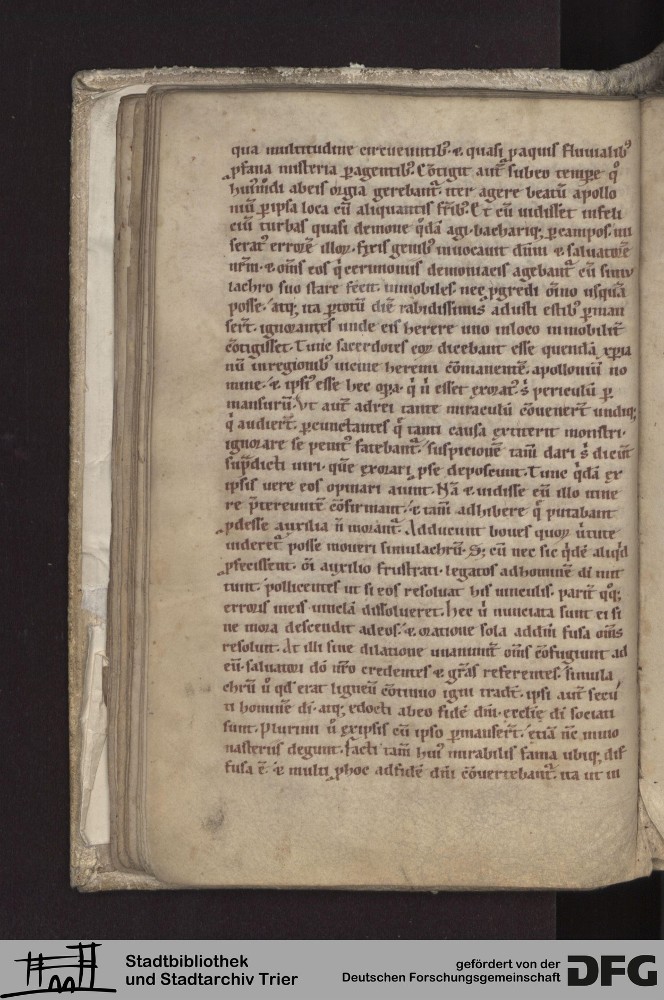 qua multitudine circueuntib⁹ ⁊ quasi paquis fluuialib⁹
pfana misteria pagentib⁹. Cōtigit aut̄ subeo tempe q°
huiꝰmdi abeis orgia gerebant̄. iter agere beatū apollo
niū ꝑipsa loca cū aliquantis fr̄ib⁹. Et cū uidisset infeli
ciū turbas quasi demone q̄dā agi. bachariq; ꝑcampos. mi
serat⁹ errorē illoꝝ. fixis genib⁹ inuocauit dn̄m ⁊ saluatorē
nr̄m. ⁊ om̄s eos q̄ cerimoniis demoniacis agebant̄ cū simu
lachro suo stare fecit immobiles. nec ꝓgredi oīno usquā
posse. atq; ita ꝑtotū diē rabidissimis adusti estib⁹ ꝑman
sert̄. ignorantes unde eis herere uno inloco inmobilit̄
cōtigisset. Tunc sacerdotes eoꝝ dicebant esse quendā xp̄ia
nū inregionib⁹ uicine heremi cōmanentē. apolloniū no
mine. ⁊ ipsi⁹ esse hec opa. q̄ n̄ esset exorat⁹. s̄ periculū ꝑ
mansurū. Vt aut̄ adrei tante miraculū cōuenert̄ undiq;
q̄ audiert̄. ꝑcunctantes q̄ tanti causa extiterit monstri.
ignorare se penit⁹ fatebant̄. suspicionē tam̄ dari s̄ dicunt
sup̄dicti uiri. quē exorari ꝑse deposcunt. Tunc q̄dā ex
ipsis uere eos opinari aiunt. Nā ⁊ uidisse eū illo itine
re p̄tereuntē cōfirmant. ⁊ tam̄ adhibere q̄ putabant
ꝓdesse auxilia n̄ morant̄. Adducunt boues quoꝝ ūtute
uideret̄ posse moueri simulachrū. S; cū nec sic q̄dē aliq̄d
ꝓfecissent. oī auxilio frustrati. legatos adhominē di mit
tunt. pollicentes ut si eos resoluat his uinculis. parit̄ q°q;
erroris in eis uincla dissolueret. hec ū nunciata sunt ei si
ne mora descendit adeos. ⁊ oratione sola addm̄ fusa om̄s
resoluit. At illi sine dilatione unanimit̄ om̄s cōfugiunt ad
eū. saluatori dō nr̄o credentes ⁊ gr̄as referentes. simula
chrū ū qd̄ erat ligneū cōtinuo igni tradt̄. ipsi aut̄ secu
ti hominē di. atq; edocti abeo fidē dn̄i. eccl̄ie di sociati
sunt. Plurimi ū exipsis cū ipso ꝑmansert̄. etiā nc̄ inmo
nasteriis degunt. facti tam̄ hui⁹ mirabilis fama ubiq; dif
fusa ē. ⁊ multi ꝓhoc adfidē dn̄i cōuertebant̄. ita ut in
Stadtbibliothek
und Stadtarchiv Trier
gefördert von der
Deutschen Forschungsgemeinschaft
DFG